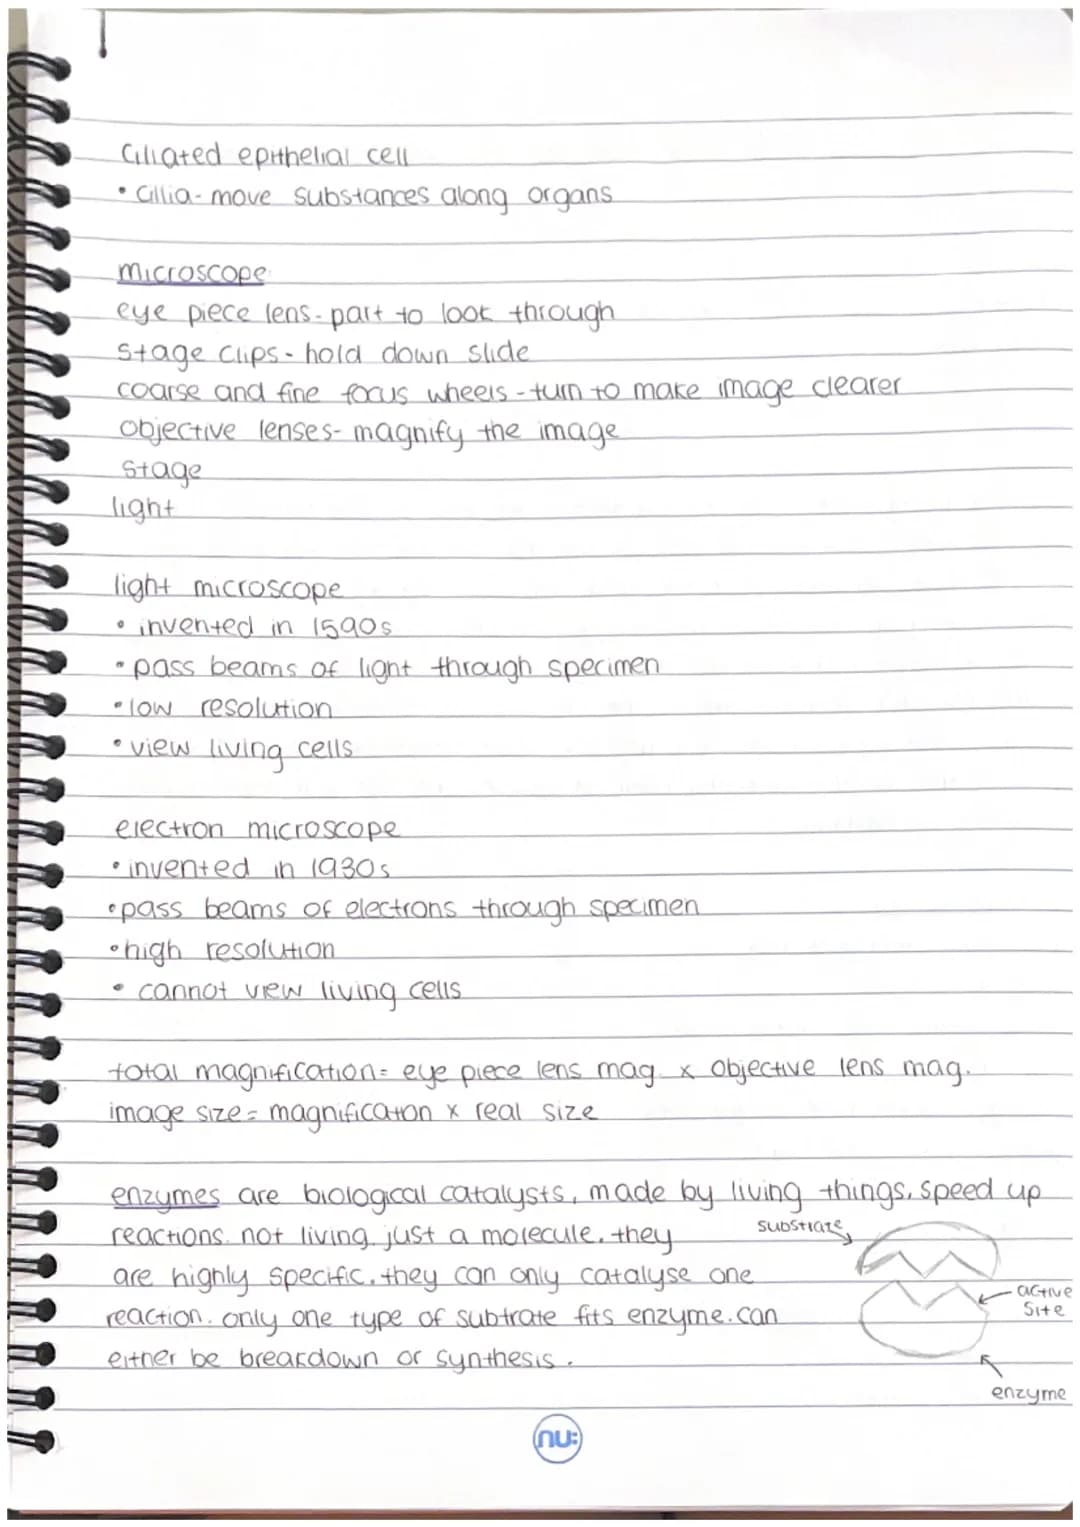 Ciliated epithelial cell
• Cillia - move substances along organs
microscope
eye piece lens - part to look through
stage clips - hold down slide
coarse and fine focus wheels - turn to make image clearer
objective lenses - magnify the image
stage
light
light microscope
• invented in 1590s
• pass beams of light through specimen
• low resolution
• view living cells
electron microscope
• invented in 1930s
• pass beams of electrons through specimen
• high resolution
• cannot view living cells
total magnification = eye piece lens mag. x objective lens mag.
image size = magnification x real size
enzymes are biological catalysts, made by living things. speed up
reactions. not living. just a molecule. they
substrate
are highly specific. they can only catalyse one
active
site
reaction. only one type of subtrate fits enzyme. can
either be breakdown or synthesis.
enzyme
nu: